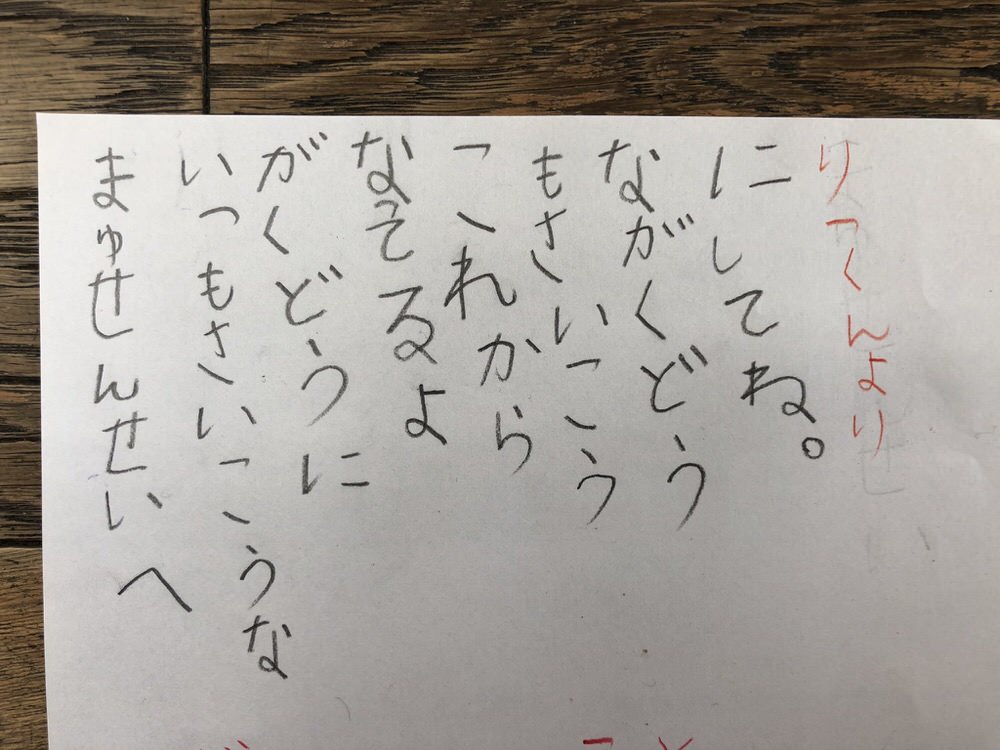 まゅせんせいへ
いつもさいこうな
がくどうに
なってるよ
これから
もさいこう
ながくどう
にしてね。
りっくんより